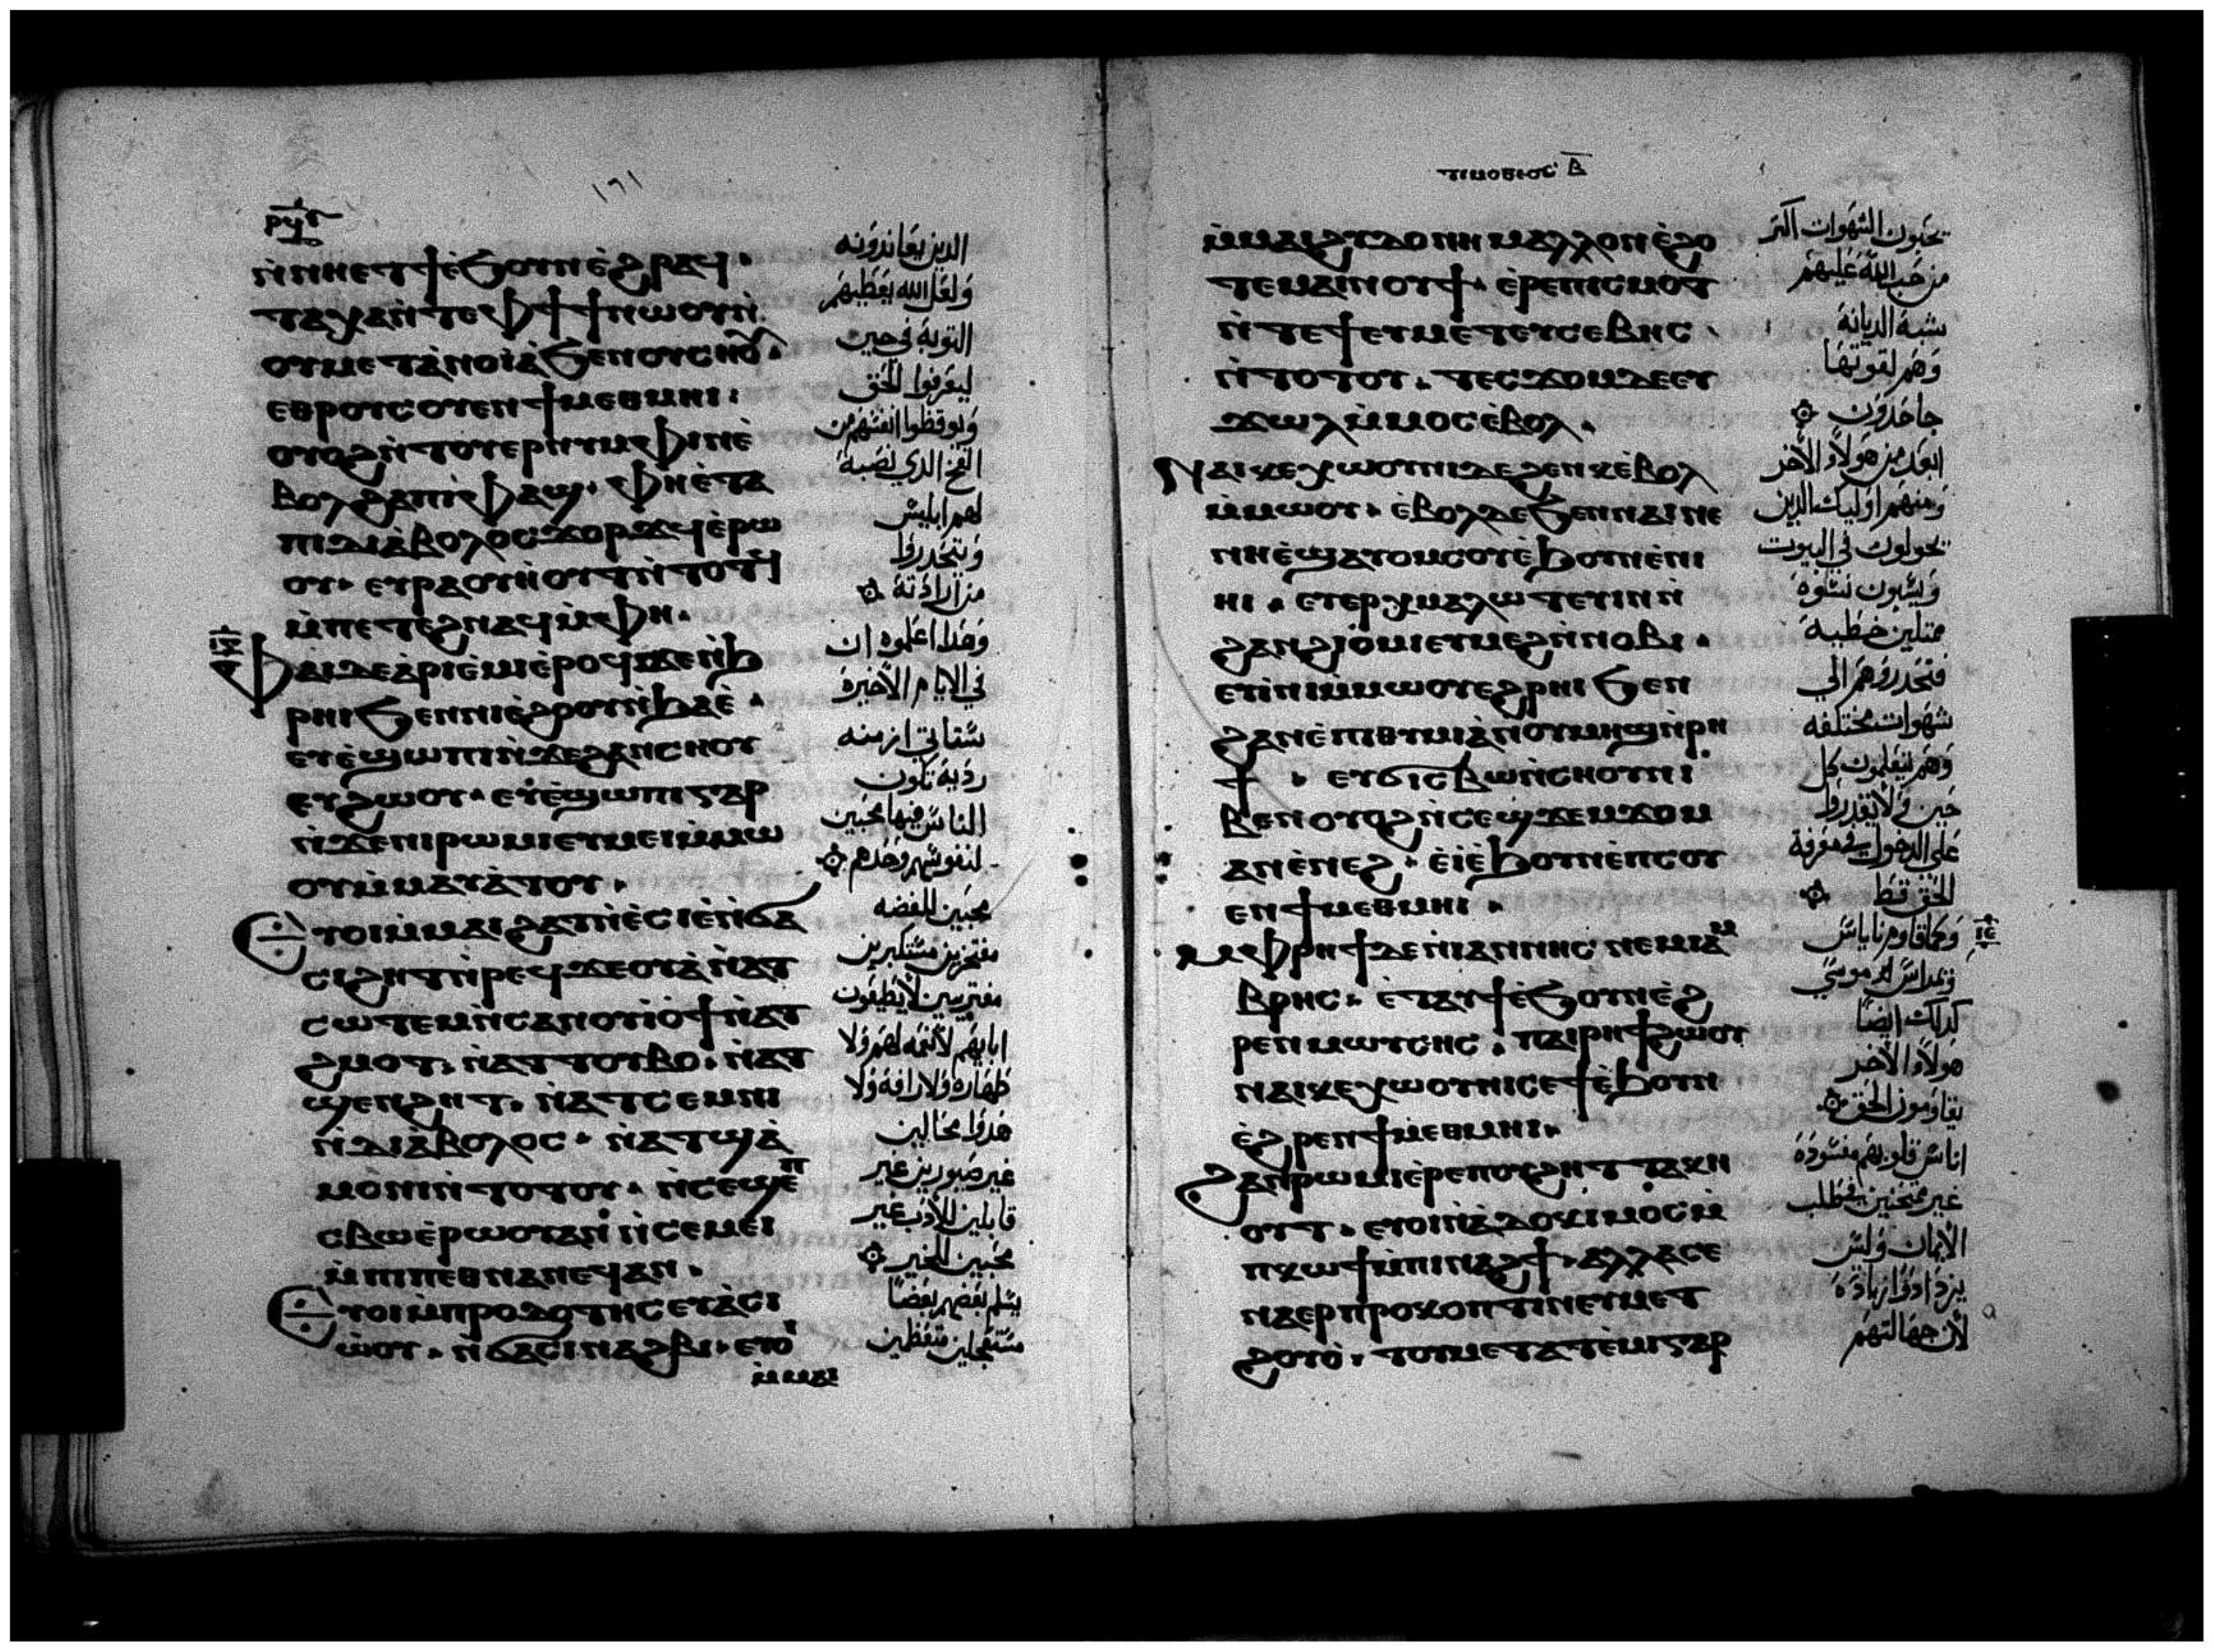 ⲣϥⲅ
١٦١
ⲛ̀ⲛⲏⲉⲧϯⲉ̀ϧⲟⲩⲛⲉ̀ϩⲣⲁϥ.
ⲧⲁⲭⲁⲛ̀ⲧⲉⲫϯϯⲛⲱⲟⲩⲛ̀
ⲟⲩⲙⲉⲧⲁⲛⲟⲓⲁ̀ϧⲉⲛⲟⲩⲥⲏⲟⲩ
ⲉⲑⲣⲟⲩⲥⲟⲩⲉⲛϯⲙⲉⲑⲙⲏⲓ.
ⲟⲩⲟϩⲛ̀ⲧⲟⲩⲉⲣⲛⲩⲙⲫⲓⲛⲉ̀
ⲃⲟⲗϩⲁⲡⲓⲫⲁϣ. ⲫⲏⲉ̀ⲧⲁ
ⲡⲓⲇⲓⲁ̀ⲃⲟⲗⲟⲥϫⲟⲣϫϥⲉ̀ⲣⲱ
ⲟⲩ. ⲉⲩⲣⲁⲟⲩⲏ̀ⲟⲩⲧⲛ̀ⲧⲟⲧϥ
ⲙ̀ⲡⲉⲧⲉϩⲛⲁϥⲙ̀ⲫⲏ.
ⲫⲁⲓⲇⲉⲁ̀ⲣⲓⲉ̀ⲙⲓⲉ̀ⲣⲟϥϫⲉⲛ̀ϧ
ⲣⲏⲓϧⲉⲛⲛⲓⲉ̀ϩⲟⲟⲩⲛ̀ϧⲁⲉ̀.
ⲉⲩⲉ̀ϣⲱⲡⲓⲛ̀ϫⲉϩⲁⲛⲥⲏⲟⲩ
ⲉⲩϩⲱⲟⲩ. ⲉⲩⲉ̀ϣⲱⲡⲓⲅⲁⲣ
ⲛ̀ϫⲉⲛⲓⲣⲱⲙⲓⲉⲩⲙⲉⲓⲙ̀ⲙⲱ
ⲟⲩⲙ̀ⲙⲁⲩⲁ̀ⲧⲟⲩ.
ⲉⲩⲟⲓⲙ̀ⲙⲁⲓϩⲁⲧⲉⲩϭⲁ
ⲥⲓϩⲏⲧⲛ̀ⲣⲉϥϫⲉⲟⲩⲁ̀ⲛ̀ⲁⲧ
ⲥⲱⲧⲉⲙⲛ̀ⲥⲁⲛⲟⲩⲓⲟ̀ϯⲛ̀ⲁⲧ
ϩⲙⲟⲧ. ⲛ̀ⲁⲧⲧⲟⲩⲃⲟ. ⲛ̀ⲁⲧ
ϣⲉⲛϩⲏⲧ. ⲛ̀ⲁⲧⲥⲉⲙⲛⲓ
ⲛ̀ⲇⲓⲁ̀ⲃⲟⲗⲟⲥ. ⲛ̀ⲁⲧϣⲁ̀
ⲙⲟⲛⲓⲛ̀ⲧⲟⲧⲟⲩ. ⲛ̀ⲥⲉϣⲉⲡ
ⲥⲃⲱⲉ̀ⲣⲱⲟⲩⲁⲛ ⲛ̀ⲥⲉⲙⲉⲓ
ⲙ̀ⲡⲓⲡⲉⲑⲛⲁⲛⲉϥⲁⲛ.
ⲉⲩⲟⲓⲙ̀ⲡⲣⲟⲇⲟⲧⲏⲥⲉⲩⲁ̀ⲥⲓ
ⲱ̀ⲟⲩ. ⲛ̀ϭⲁⲥⲓⲛⲁϩⲃⲓ. ⲉⲩⲟⲓ
ⲙ̀ⲙⲁⲓ
الدين يعاندونه
ولعل الله يعطيهم
التوبة في حين
ليعرفوا الحق
ويوقظوا انفسهم من
الفخ الدي نصبه
لهم ابليس
ويتحدروا
من ارادته
وهدا اعلموه ان
في الايام الاخيرة
ستاتي ازمنه
ردية تكون
الناس فيها محبين
لنفوسهم وحدهم
محبين للفضه
مفتخرين مستكبرين
مفتريين لا يطيعون
ابايهم لا نعمه لهم ولا
طهارة ولا رافة ولا
هدوا محالين
غير صبورين غير
قابلين للادب غير
محبين الخير
يسلم بعضهم بعضا
مستعجلين متعظمين
ⲧⲓⲙⲟⲑⲉⲟⲥ ⲃ̅
ⲙ̀ⲙⲁⲓϩⲩⲇⲟⲛⲏⲙⲁⲗⲗⲟⲛⲉ̀ϩⲟ
ⲧⲉⲙⲁⲓⲛⲟⲩϯ. ⲉ̀ⲣⲉⲡⲓⲥⲙⲟⲧ
ⲛ̀ⲧⲉϯⲉⲩⲙⲉⲧⲉⲩⲥⲉⲃⲏⲥ
ⲛ̀ⲧⲟⲧⲟⲩ. ⲧⲉⲥϫⲟⲙⲇⲉⲉⲩ
ϫⲱⲗⲙ̀ⲙⲟⲥⲉ̀ⲃⲟⲗ.
ⲛⲁⲓⲕⲉⲭⲱⲟⲩⲛⲓⲇⲉϩⲉⲛⲕⲉ̀ⲃⲟⲗ
ⲙ̀ⲙⲱⲟⲩ. ⲉ̀ⲃⲟⲗⲇⲉϧⲉⲛⲛⲁⲓⲛⲉ
ⲛⲏⲉ̀ϣⲁⲩⲟⲙⲥⲟⲩⲉ̀ϧⲟⲩⲛⲉ̀ⲛⲓ
ⲏⲓ. ⲉⲩⲉⲣⲭⲙⲁⲗⲱⲧⲉⲩⲓⲛⲛ̀
ϩⲁⲛϩⲓⲟ̀ⲙⲓⲉⲩⲙⲉϩⲛ̀ⲛⲟⲃⲓ.
ⲉⲩⲓ̀ⲛⲓⲙ̀ⲙⲱⲟⲩⲉϩⲣⲏⲓϧⲉⲛ
ϩⲁⲛⲉ̀ⲡⲓⲑⲩⲙⲓⲁ̀ⲛ̀ⲟⲩⲙⲏϣⲛ̀ⲣⲏ
ϯ. ⲉⲩϭⲓⲥⲃⲱⲛ̀ⲥⲏⲟⲩⲛⲓ
ⲃⲉⲛⲟⲩⲟϩⲛ̀ⲥⲉϣϫⲉⲙϫⲟⲙ
ⲁⲛⲉ̀ⲛⲉϩ. ⲉ̀ⲓ̀ⲉ̀ϧⲟⲩⲛⲉ̀ⲡⲥⲟⲩ
ⲉⲛϯⲙⲉⲑⲙⲏⲓ.
ⲙⲫⲣⲏϯⲇⲉⲛ̀ⲓⲁⲛⲛⲏⲥ ⲛⲉⲙⲓⲁⲙ
ⲃⲣⲏⲥ. ⲉ̀ⲧⲁⲩϯⲉ̀ϧⲟⲩⲛⲉ̀ϩ
ⲣⲉⲛⲙⲱⲩⲥⲏⲥ. ⲡⲁⲓⲣⲏϯϩⲱⲟⲩ
ⲛⲁⲓⲕⲉⲭⲱⲟⲩⲛⲓⲥⲉϯⲉ̀ϧⲟⲩⲛ
ⲉ̀ϩⲣⲉⲛϯⲙⲉⲑⲙⲏⲓ.
ϩⲁⲛⲣⲱⲙⲓⲉ̀ⲣⲉⲡⲟⲩϩⲏⲧⲧⲁⲕⲏ
ⲟⲩⲧ. ⲉⲩⲟⲓⲛ̀ⲁ̀ⲇⲟⲕⲓⲙⲟⲥⲙ̀
ⲡⲕⲱϯⲙ̀ⲡⲓⲛⲁϩϯ. ⲁⲗⲗⲁⲥⲉ
ⲛⲁⲉⲣⲡⲣⲟⲕⲟⲡⲧⲓⲛⲉⲩⲙⲉⲧ
ϩⲟⲩⲟ̀. ⲧⲟⲩⲙⲉⲧⲁⲧⲉ̀ⲙⲓⲅⲁⲣ
يحبون الشهوات اكثر
من حب الله عليهم
شبه الديانة
وهم لقوتها
جاحدون
ابعد من هولاء الاخر
ومنهم اوليك الدين
يجولون في البيوت
ويسبون نسوة
ممتلين خطيه
فتحدروهم الي
شهوات مختلفه
وهم يتعلمون كل
حين ولا يقدروا
على الدخول في معرفة
الحق قط
ⲓⲉ
وكما قاوم يناياس
ويمبراس لموسي
كدلك ايضا
هولاء الاخر
يقاومون الحق
اناس قلوبهم مفسودة
غير ممتحنين في طلب
الايمان وليس
يزدادوا زيادة
لان جهالتهم